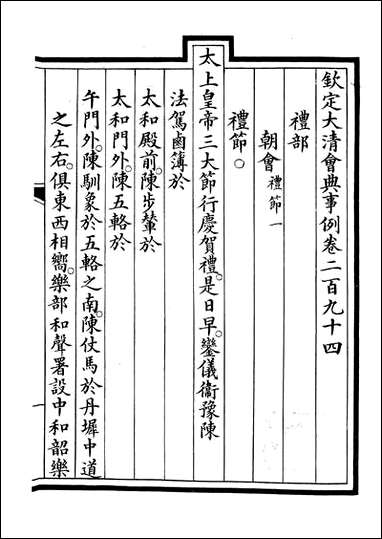 欽定大清會典事例卷二百九十四
禮部
朝會禮節一
禮節○
太上皇帝三大節行慶賀禮是日早鑾儀衞豫陳
法駕鹵簿於
太和殿前陳步輦於
太和門外陳五輅於
午門外陳馴象於五輅之南陳仗馬於丹墀中道
之左右俱東西相嚮樂部和聲署設中和韶樂
一